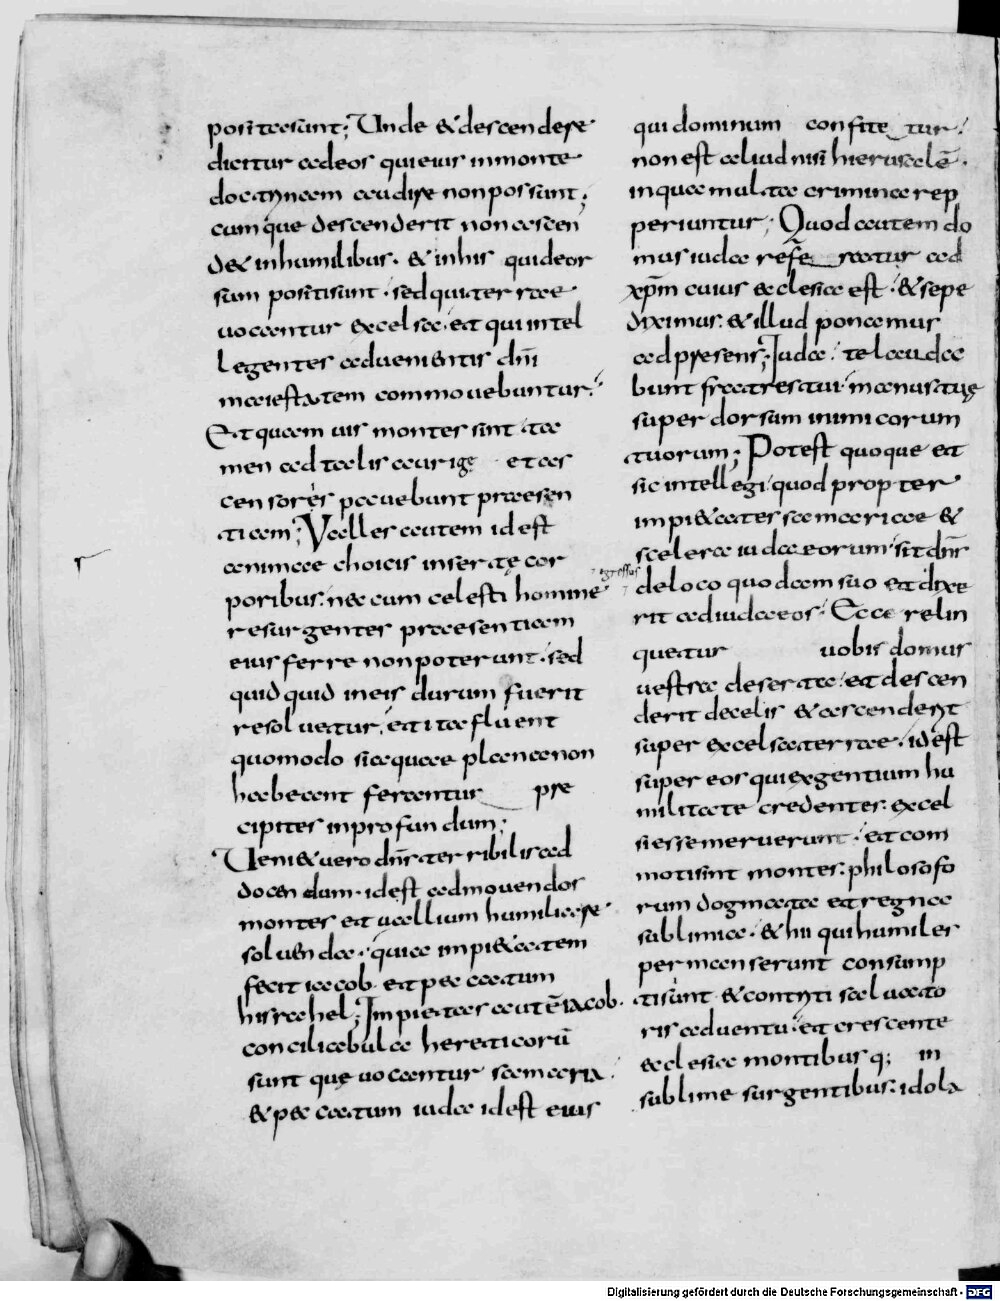 positasunt; Unde & descendere
dicitur ad eos qui eius in monte
doctrinam audire non possunt;
cumque descenderit non ascen
d& in humilibus. & in his qui deor
sum positi sunt. sed qui terrae
uocantur excelsae. et qui intel
legentes aduenientis dni
maiestatem commouebuntur.
Et quam uis montes sint ta
men ad talis aurigę et as
censores pauebunt praesen
tiam; Valles autem id est
animae choicis insertę cor
poribus. nec cum celesti homine
resurgentes praesentiam
eius ferre non poterunt. sed
quidquid in eis durum fuerit
resoluetur. et ita fluent
quomodo si aquae planan non
habeant ferantur pre
cipites in profundum;
Ueni& uero dns terribilis ad
docendum. id est ad mouendos
montes et uallium humiliare
soluenda. quia impi&atem
fecit iacob. et peccatum
hisrahel; Impietas autē iacob.
conciliabula hereticorū
sunt quę uocantur samaria.
& peccatum iuda id est eius
qui dominum confitetur.
non est aliud nisi hierusalē.
in qua multa crimina rep
periuntur; Quod autem do
mus iuda refe ratur ad
xpm cuius ecclesia est. & sepe
diximus. & illud ponamus
ad presens; Iuda. te lauda
bunt fratres tui. manus tuę
super dorsum inimicorum
tuorum; Potest quoque et
sic intellegi quod propter
impi&ates samariae &
scelera iudaeorum. sit dns
egressus
de loco quodam suo et dixe
rit ad iudaeos. Ecce relin
quetur uobis domus
uestra deserta. et descen
derit de celis & ascenderit
super excelsa terrae. id est
super eos qui ex gentium hu
militate credentes. excel
si esse meruerunt. et com
moti sunt montes. philosofo
rum dogmata et regna
sublimia. & hii qui humiles
permanserunt consump
ti sunt & contriti saluato
ris aduentu. et crescente
ecclesia montibusq; in
sublime surgentibus. idola
Digitalisierung gefördert durch die Deutsche Forschungsgemeinschaft - DFG